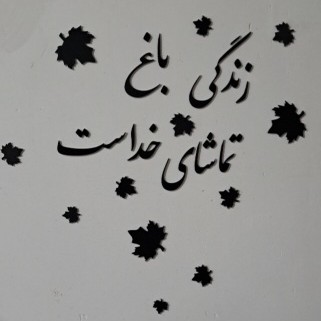 زندگی باغ
تماشای خداست